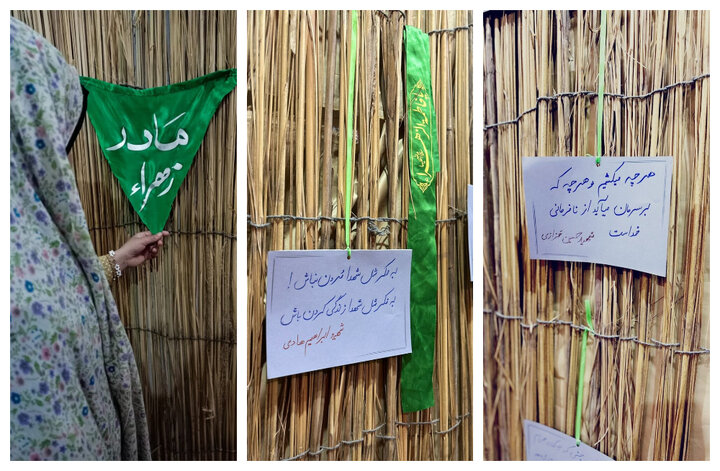 مادر
زهراء
یا فاطمة الزهرا
به فکر مثل شهدا مُردن نباش!
به فکر مثل شهدا زندگی کردن باش
شهید ابراهیم هادی
هرچه میکشیم و هرچه که
بر سرمان میآید از نافرمانی
خداست
شهید حسین خرازی